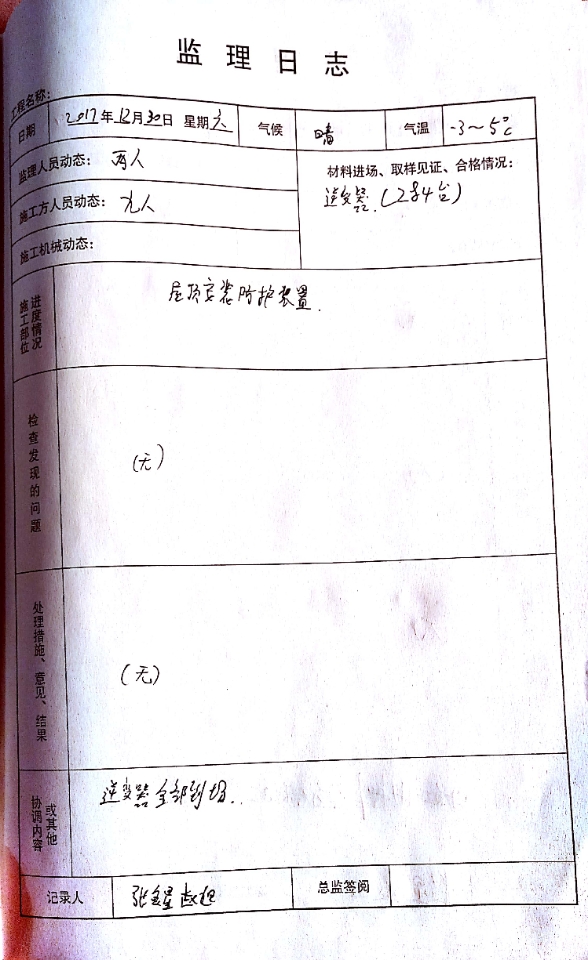 监理日志
工程名称:
日期 2017年12月30日 星期六 气候 晴 气温 -3~5℃
监理人员动态: 两人
材料进场、取样见证、合格情况:
逆变器.(284台)
施工方人员动态: 九人
施工机械动态:
施工部位
进度情况
屋顶安装防护装置.
检查发现的问题
(无)
处理措施、意见、结果
(无)
协调内容
或其他
逆变器全部到场.
记录人 张金星 总监签阅